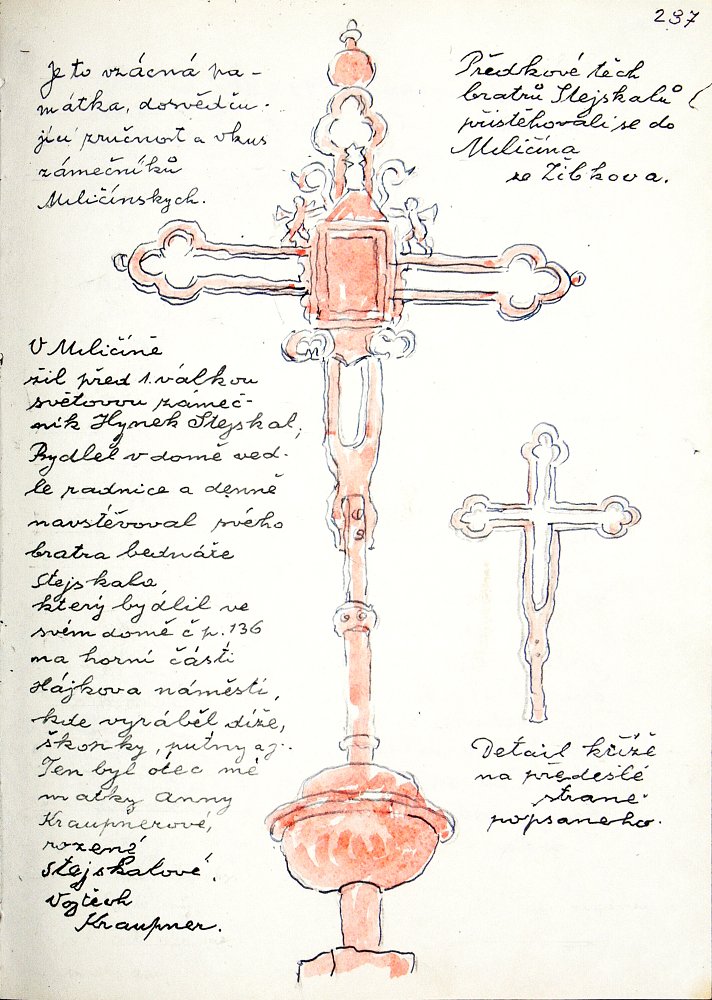 237
Je to vzácná pa-
mátka, dosvědču-
jící zručnost a vkus
zámečníků
Miličínských.
Předkové těch
bratrů Stejskalů
přistěhovali se do
Miličína
ze Žibkova.
V Miličíně
žil před 1. válkou
světovou zámeč-
ník Hynek Stejskal,
Bydlel v domě ved-
le radnice a denně
navštěvoval svého
bratra bednáře
Stejskala
který bydlil ve
svém domě č p. 136
na horní části
Hájkova náměstí,
kde vyráběl díže,
škopky, putny aj.
Ten byl otec mé
matky Anny
Kraupnerové,
rozené
Stejskalové.
Vojtěch
Kraupner.
Detail kříže
na předešlé
straně
popsaného.